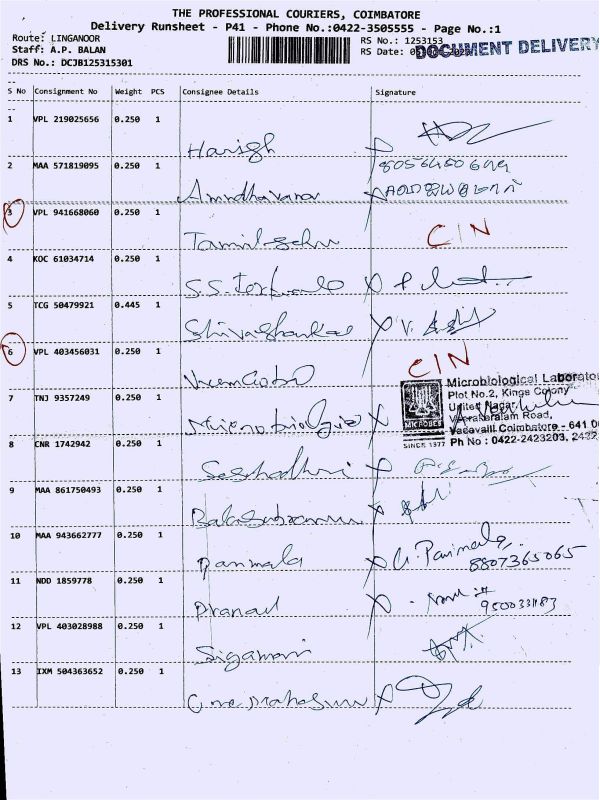 THE PROFESSIONAL COURIERS, COIMBATORE
Delivery Runsheet - P41 - Phone No.:0422-3505555 - Page No.:1
Route: LINGANOOR
Staff: A.P. BALAN
DRS No.: DCJB125315301
RS No.: 1253153
RS Date:
DOCUMENT DELIVERY
S No Consignment No Weight PCS Consignee Details Signature
1 VPL 219025656 0.250 1
Harish
2 MAA 571819095 0.250 1
3 VPL 941668060 0.250 1
CIN
4 KOC 61034714 0.250 1
S.S.
5 TCG 50479921 0.445 1
Shivashankar
6 VPL 403456031 0.250 1
CIN
7 TNJ 9357249 0.250 1
Microbiological
Plot No.2, Kings Colony
United Nagar,
Road,
Vadavalli Coimbatore - 641 0
MICROBES
SINCE 1977 Ph No : 0422-2423203, 2432
8 CNR 1742942 0.250 1
Seshadhri
9 MAA 861750493 0.250 1
10 MAA 943662777 0.250 1
Parimala G. Parimala
8807365065
11 NDD 1859778 0.250 1
Pranav
12 VPL 403028988 0.250 1
Sigamani
13 IXM 504363652 0.250 1